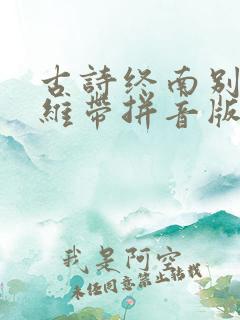 古詩终南别
維帶拼音版
我是阿空
未经同意禁止转载